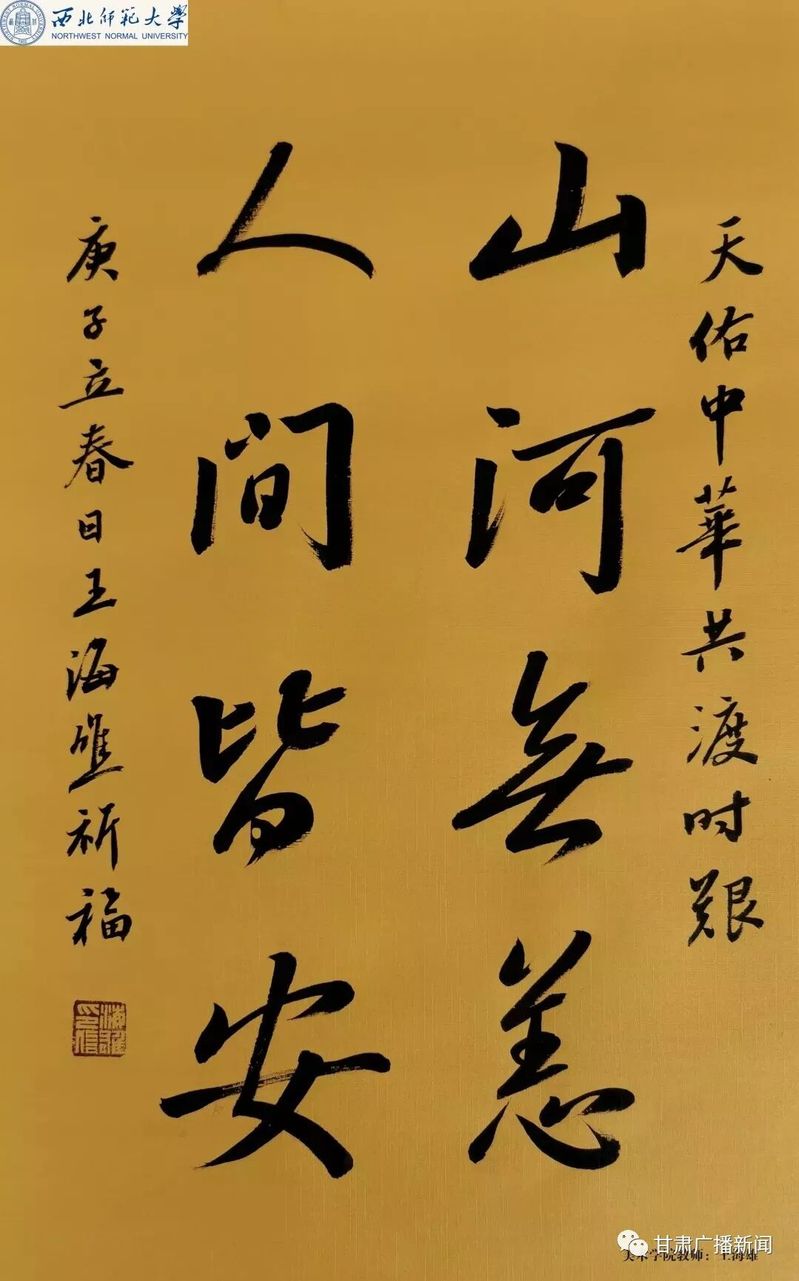 西北师范大学
NORTHWEST NORMAL UNIVERSITY
天佑中華共渡时艱
山河無恙
人间皆安
庚子立春日王海雄祈福
美术学院教师：王海雄
甘肃广播新闻